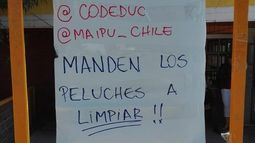 @ CODEDUC
@MAIPU_CHILE
MANDEN LOS
PELUCHES A
LIMPIAR !!